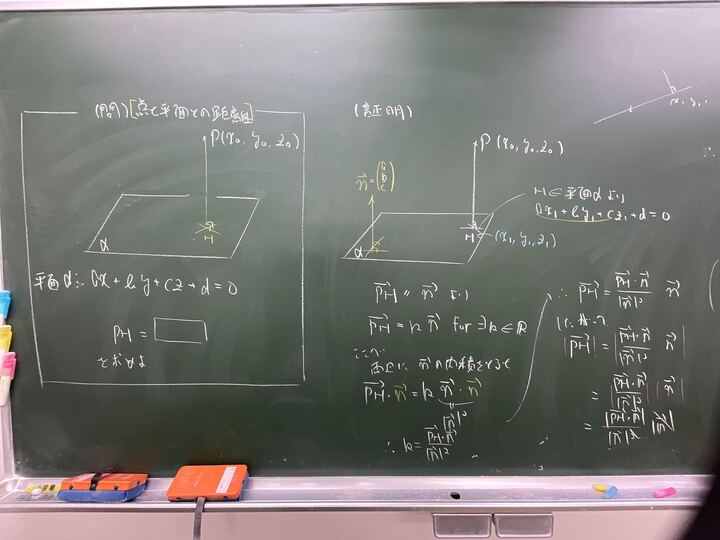 (問)[点と平面との距離]
P(x₀, y₀, z₀)
H
α
平面α: ax + by + cz + d = 0
PH = □
を求めよ
(証明)
P(x₀, y₀, z₀)
n⃗ = (a b c)
H∈平面αより
ax₁ + by₁ + cz₁ + d = 0
H
(x₁, y₁, z₁)
α
PH⃗ // n⃗ より
PH⃗ = k n⃗ for ∃k∈ℝ
両辺に n⃗ の内積をとると
PH⃗・n⃗ = k n⃗・n⃗
|n⃗|²
∴ k = PH⃗・n⃗ / |n⃗|²
∴ PH⃗ = PH⃗・n⃗ / |n⃗|² n⃗
|PH⃗| = | PH⃗・n⃗ / |n⃗|² n⃗ |
= | PH⃗・n⃗ / |n⃗|² | | n⃗ |
= |PH⃗・n⃗| / |n⃗|² |n⃗|
x₁, y₁